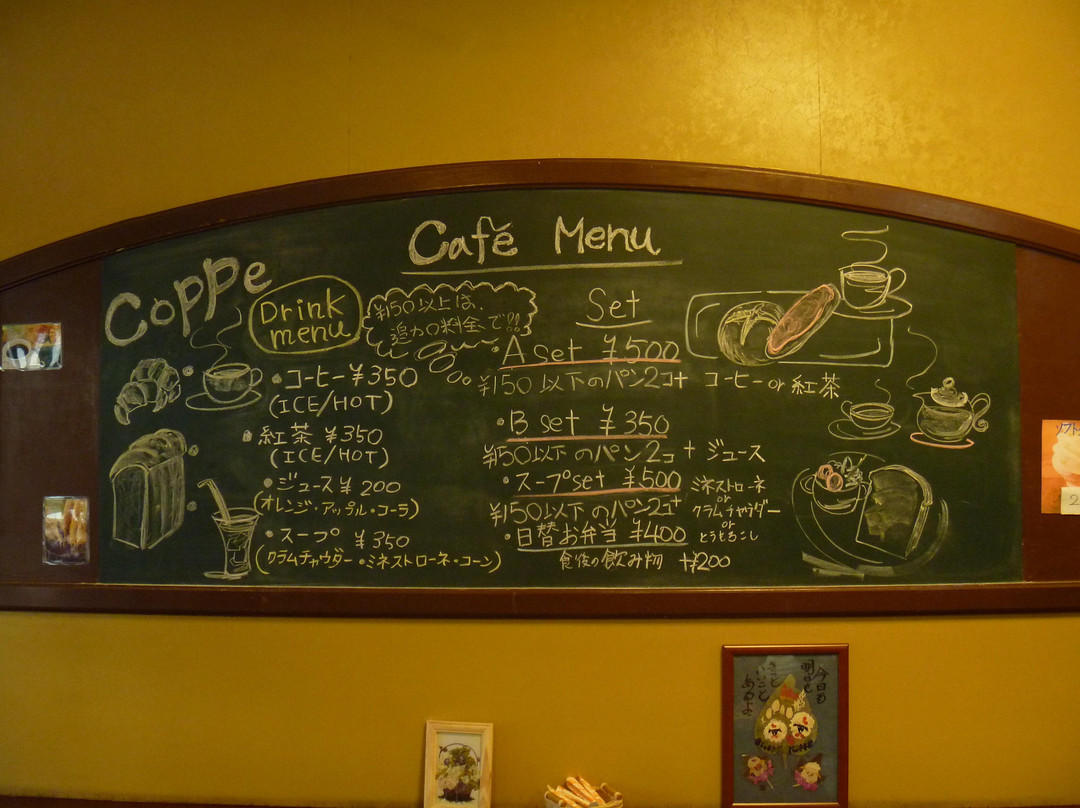 Café Menu
Coppe
Drink
menu
¥150以上は、
追加料金で!!
・コーヒー ¥350
(ICE/HOT)
・紅茶 ¥350
(ICE/HOT)
・ジュース ¥200
(オレンジ・アップル・コーラ)
・スープ ¥350
(クラムチャウダー・ミネストローネ・コーン)
Set
・A set ¥500
¥150以下のパン2コ+ コーヒー or 紅茶
・B set ¥350
¥150以下のパン2コ + ジュース
・スープset ¥500
¥150以下のパン2コ+
ミネストローネ
or
クラムチャウダー
or
とうもろこし
・日替お弁当 ¥400
食後の飲み物 +¥200
ソフト
今日も
明日も
きっと
いいこと
あるよ